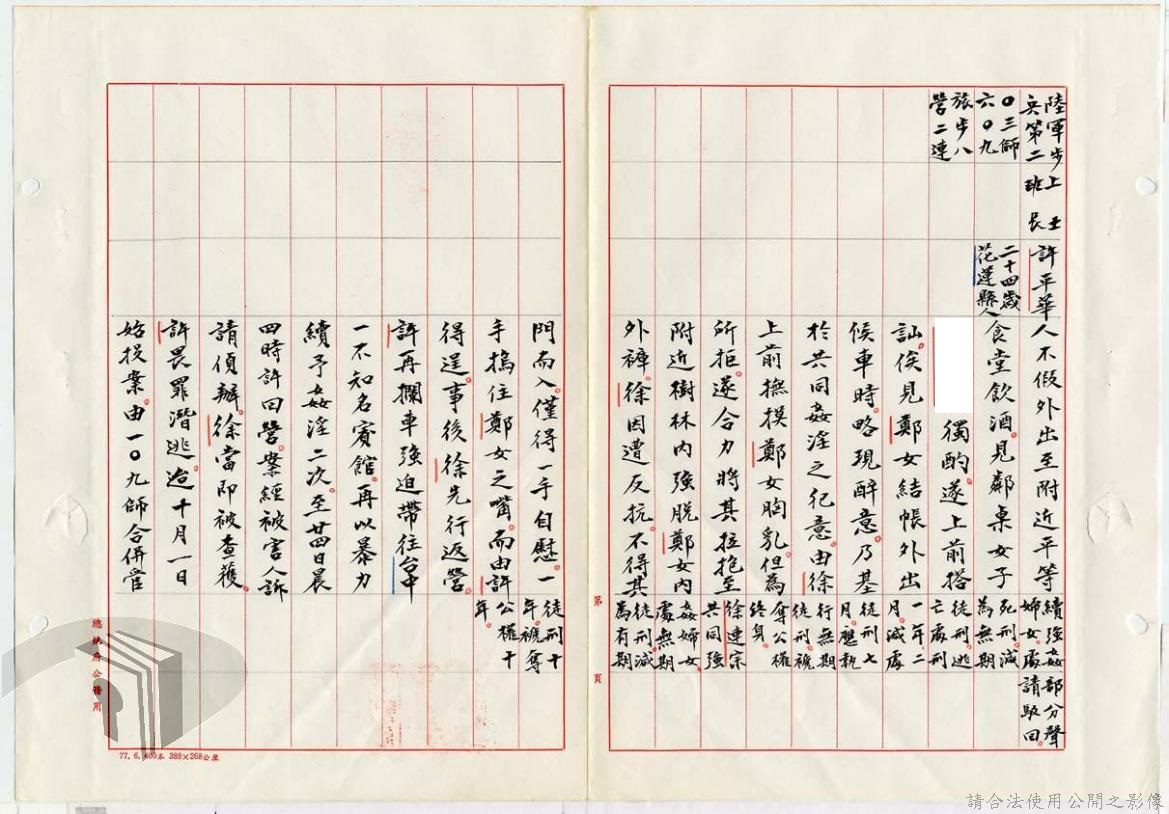 陸軍步
兵第二
〇三師
六〇九
旅步八
營二連
上士
班長
許平華
二十四歲
花蓮縣人
人不假外出至附近平等
食堂飲酒。見鄰桌女子
獨酌。遂上前搭
訕。俟見鄭女結帳外出
候車時。略現醉意。乃基
於共同姦淫之犯意。由徐
上前撫摸鄭女胸乳。但為
所拒。遂合力將其拉抱至
附近樹林內強脫鄭女內
外褲。徐因遭反抗。不得其
門而入。僅得一手自慰。一
手摀住鄭女之嘴。而由許
得逞。事後徐先行返營。
許再攔車強迫帶往台中
一不知名賓館。再以暴力
續予姦淫二次。至廿四日晨
四時許回營。案經被害人訴
請偵辦。徐當即被查獲。
許畏罪潛逃。迨十月一日
始投案。由一〇九師合併管
續強姦
婦女。處
死刑。減
為無期
徒刑。逃
亡處刑
一年二
月。減處
徒刑七
月。應執
行無期
徒刑。褫
奪公權
終身。
徐連宗
共同強
姦婦女。
處無期
徒刑。減
為有期
徒刑十
年。褫奪
公權十
年。
部分聲
請駁回。
第 頁
總統府公務用
77. 6. 400本 388×268公厘
請合法使用公開之影像